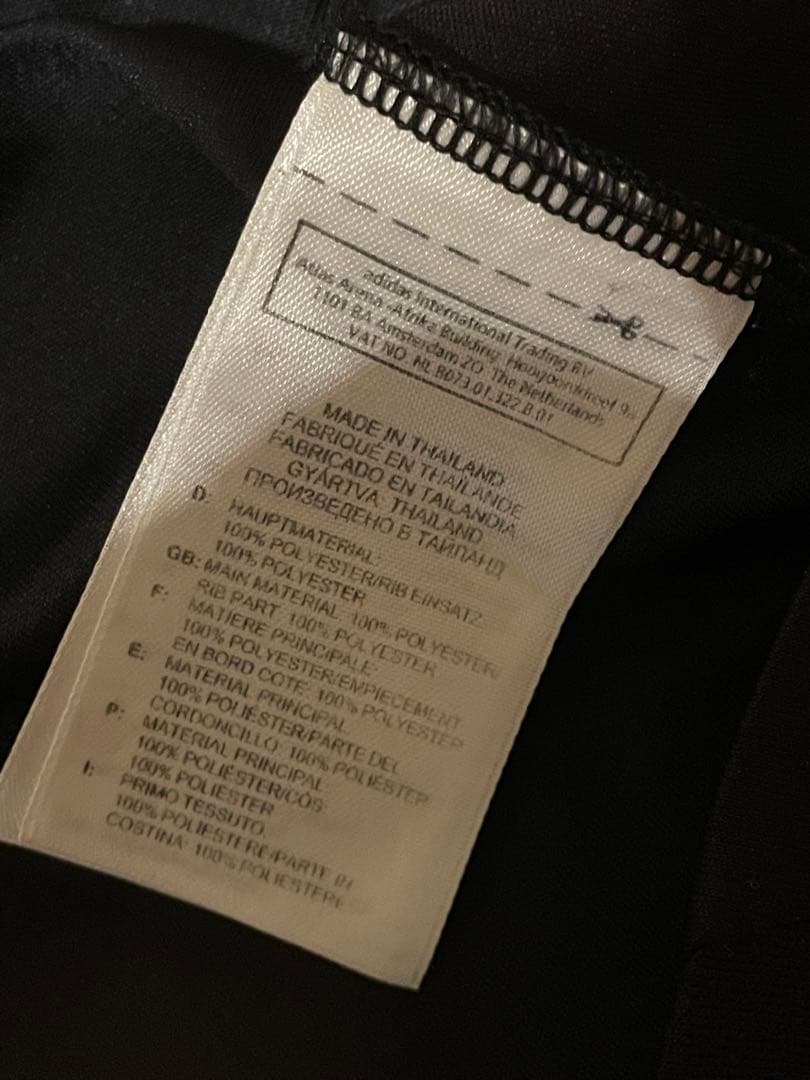 adidas International Trading BV
Atlas Arena -Afrika Building, Hoogoorddreef 9a
1101 BA Amsterdam ZO The Netherlands
VAT NO. NL 8073.01.322.B.01
MADE IN THAILAND
FABRIQUÉ EN THAÏLANDE
FABRICADO EN TAILANDIA
GYÁRTVA: THAILAND
ПРОИЗВЕДЕНО В ТАИЛАНД
D: HAUPTMATERIAL:
100% POLYESTER/RIB EINSATZ:
100% POLYESTER
GB: MAIN MATERIAL: 100% POLYESTER/
RIB PART: 100% POLYESTER
F: MATIERE PRINCIPALE:
100% POLYESTER/EMPIECEMENT
EN BORD COTE: 100% POLYESTER
E: MATERIAL PRINCIPAL
100% POLIÉSTER/PARTE DEL
CORDONCILLO: 100% POLIÉSTER
P: MATERIAL PRINCIPAL
100% POLIÉSTER/CÓS
100% POLIESTER
I: PRIMO TESSUTO
100% POLIESTERE/PARTE IN
COSTINA: 100% POLIESTERE